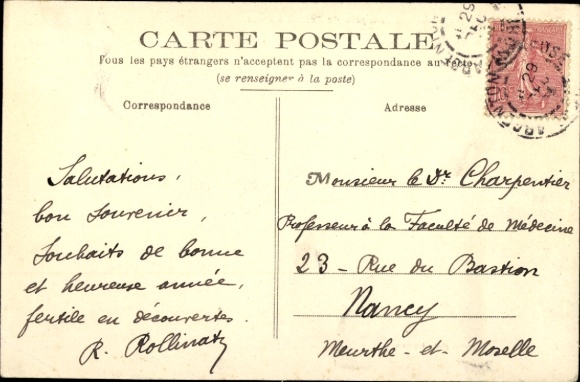 CARTE POSTALE
Tous les pays étrangers n'acceptent pas la correspondance au recto
(se renseigner à la poste)
Correspondance
Adresse
Salutations,
bon souvenir,
Souhaits de bonne
et heureuse année,
fertile en découvertes.
R. Rollinat
Monsieur le Dr. Charpentier
Professeur à la Faculté de Médecine
23 - Rue du Bastion
Nancy
Meurthe-et-Moselle
ARGENTON
29